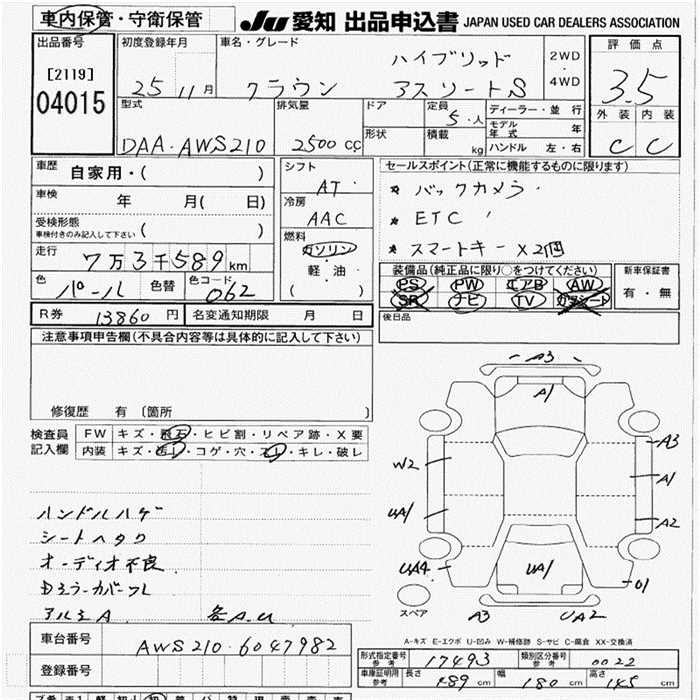 車内保管・守衛保管
JU 愛知 出品申込書 JAPAN USED CAR DEALERS ASSOCIATION
出品番号 初度登録年月 車名・グレード 評価点
[2119]
04015
25 11月 クラウン ハイブリッド アスリートS 2WD・4WD
3.5
外装 内装
C C
型式 排気量 ドア 定員 ディーラー・並行
DAA・AWS210 2500cc 5・人
形状 積載 kg モデル年式 年
ハンドル 左・右
車歴 自家用・( ) シフト AT・
セールスポイント(正常に機能するものに限ります)
車検 年 月( 日) 冷房 AAC
* バックカメラ・
* ETC
* スマートキー×2個
受検形態 車検付きのみ記入して下さい ( )
燃料 ガソリン・軽油・( )
走行 7万3千589km
装備品(純正品に限り○をつけてください) 新車保証書
PS PW エアB AW 有・無
SR ナビ TV 革シート
色 パール 色替 色コード 062
R券 13860円 名変通知期限 月 日
後日品
注意事項申告欄(不具合内容等は具体的に記入して下さい)
修復歴 有 〔箇所 〕
検査員記入欄 FW キズ・飛石・ヒビ割・リペア跡・X要
内装 キズ・汚レ・コゲ・穴・スレ・キレ・破レ
ハンドルハゲ
シートヘタリ
オーディオ不良
Dミラーカバーワレ
アルミA 各A.U
A3
A1
A3
W2
A1
UA1
A2
UA4
UA1
01
スペア
A3 UA2
A-キズ E-エクボ U-凹み W-補修跡 S-サビ C-腐食 XX-交換済
車台番号 AWS210-6047982
登録番号
形式指定番号 参考 17493 類別区分番号 参考 0022
車庫証明用 参考 長さ 489cm 幅 180cm 高さ 145cm